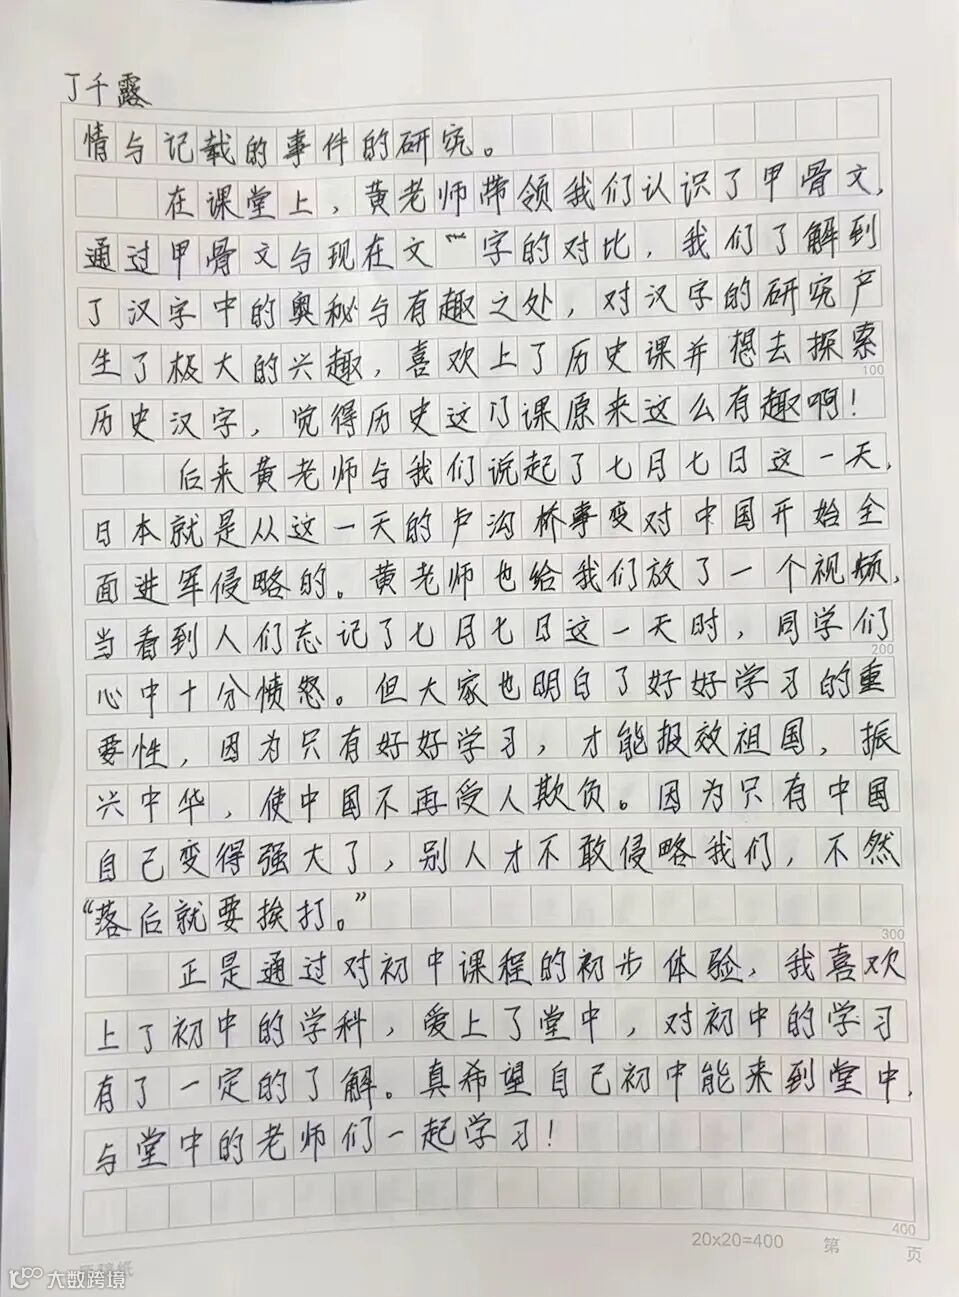 丁千露
情与记载的事件的研究。
在课堂上，黄老师带领我们认识了甲骨文，
通过甲骨文与现在文字的对比，我们了解到
了汉字中的奥秘与有趣之处，对汉字的研究产
生了极大的兴趣，喜欢上了历史课并想去探索
100
历史汉字，觉得历史这门课原来这么有趣啊！
后来黄老师与我们说起了七月七日这一天，
日本就是从这一天的卢沟桥事变对中国开始全
面进军侵略的。黄老师也给我们放了一个视频，
当看到人们忘记了七月七日这一天时，同学们
200
心中十分愤怒。但大家也明白了好好学习的重
要性，因为只有好好学习，才能报效祖国，振
兴中华，使中国不再受人欺负。因为只有中国
自己变得强大了，别人才不敢侵略我们，不然
“落后就要挨打。”
300
正是通过对初中课程的初步体验，我喜欢
上了初中的学科，爱上了堂中，对初中的学习
有了一定的了解。真希望自己初中能来到堂中，
与堂中的老师们一起学习！
400
20x20=400 第 页
大数跨境